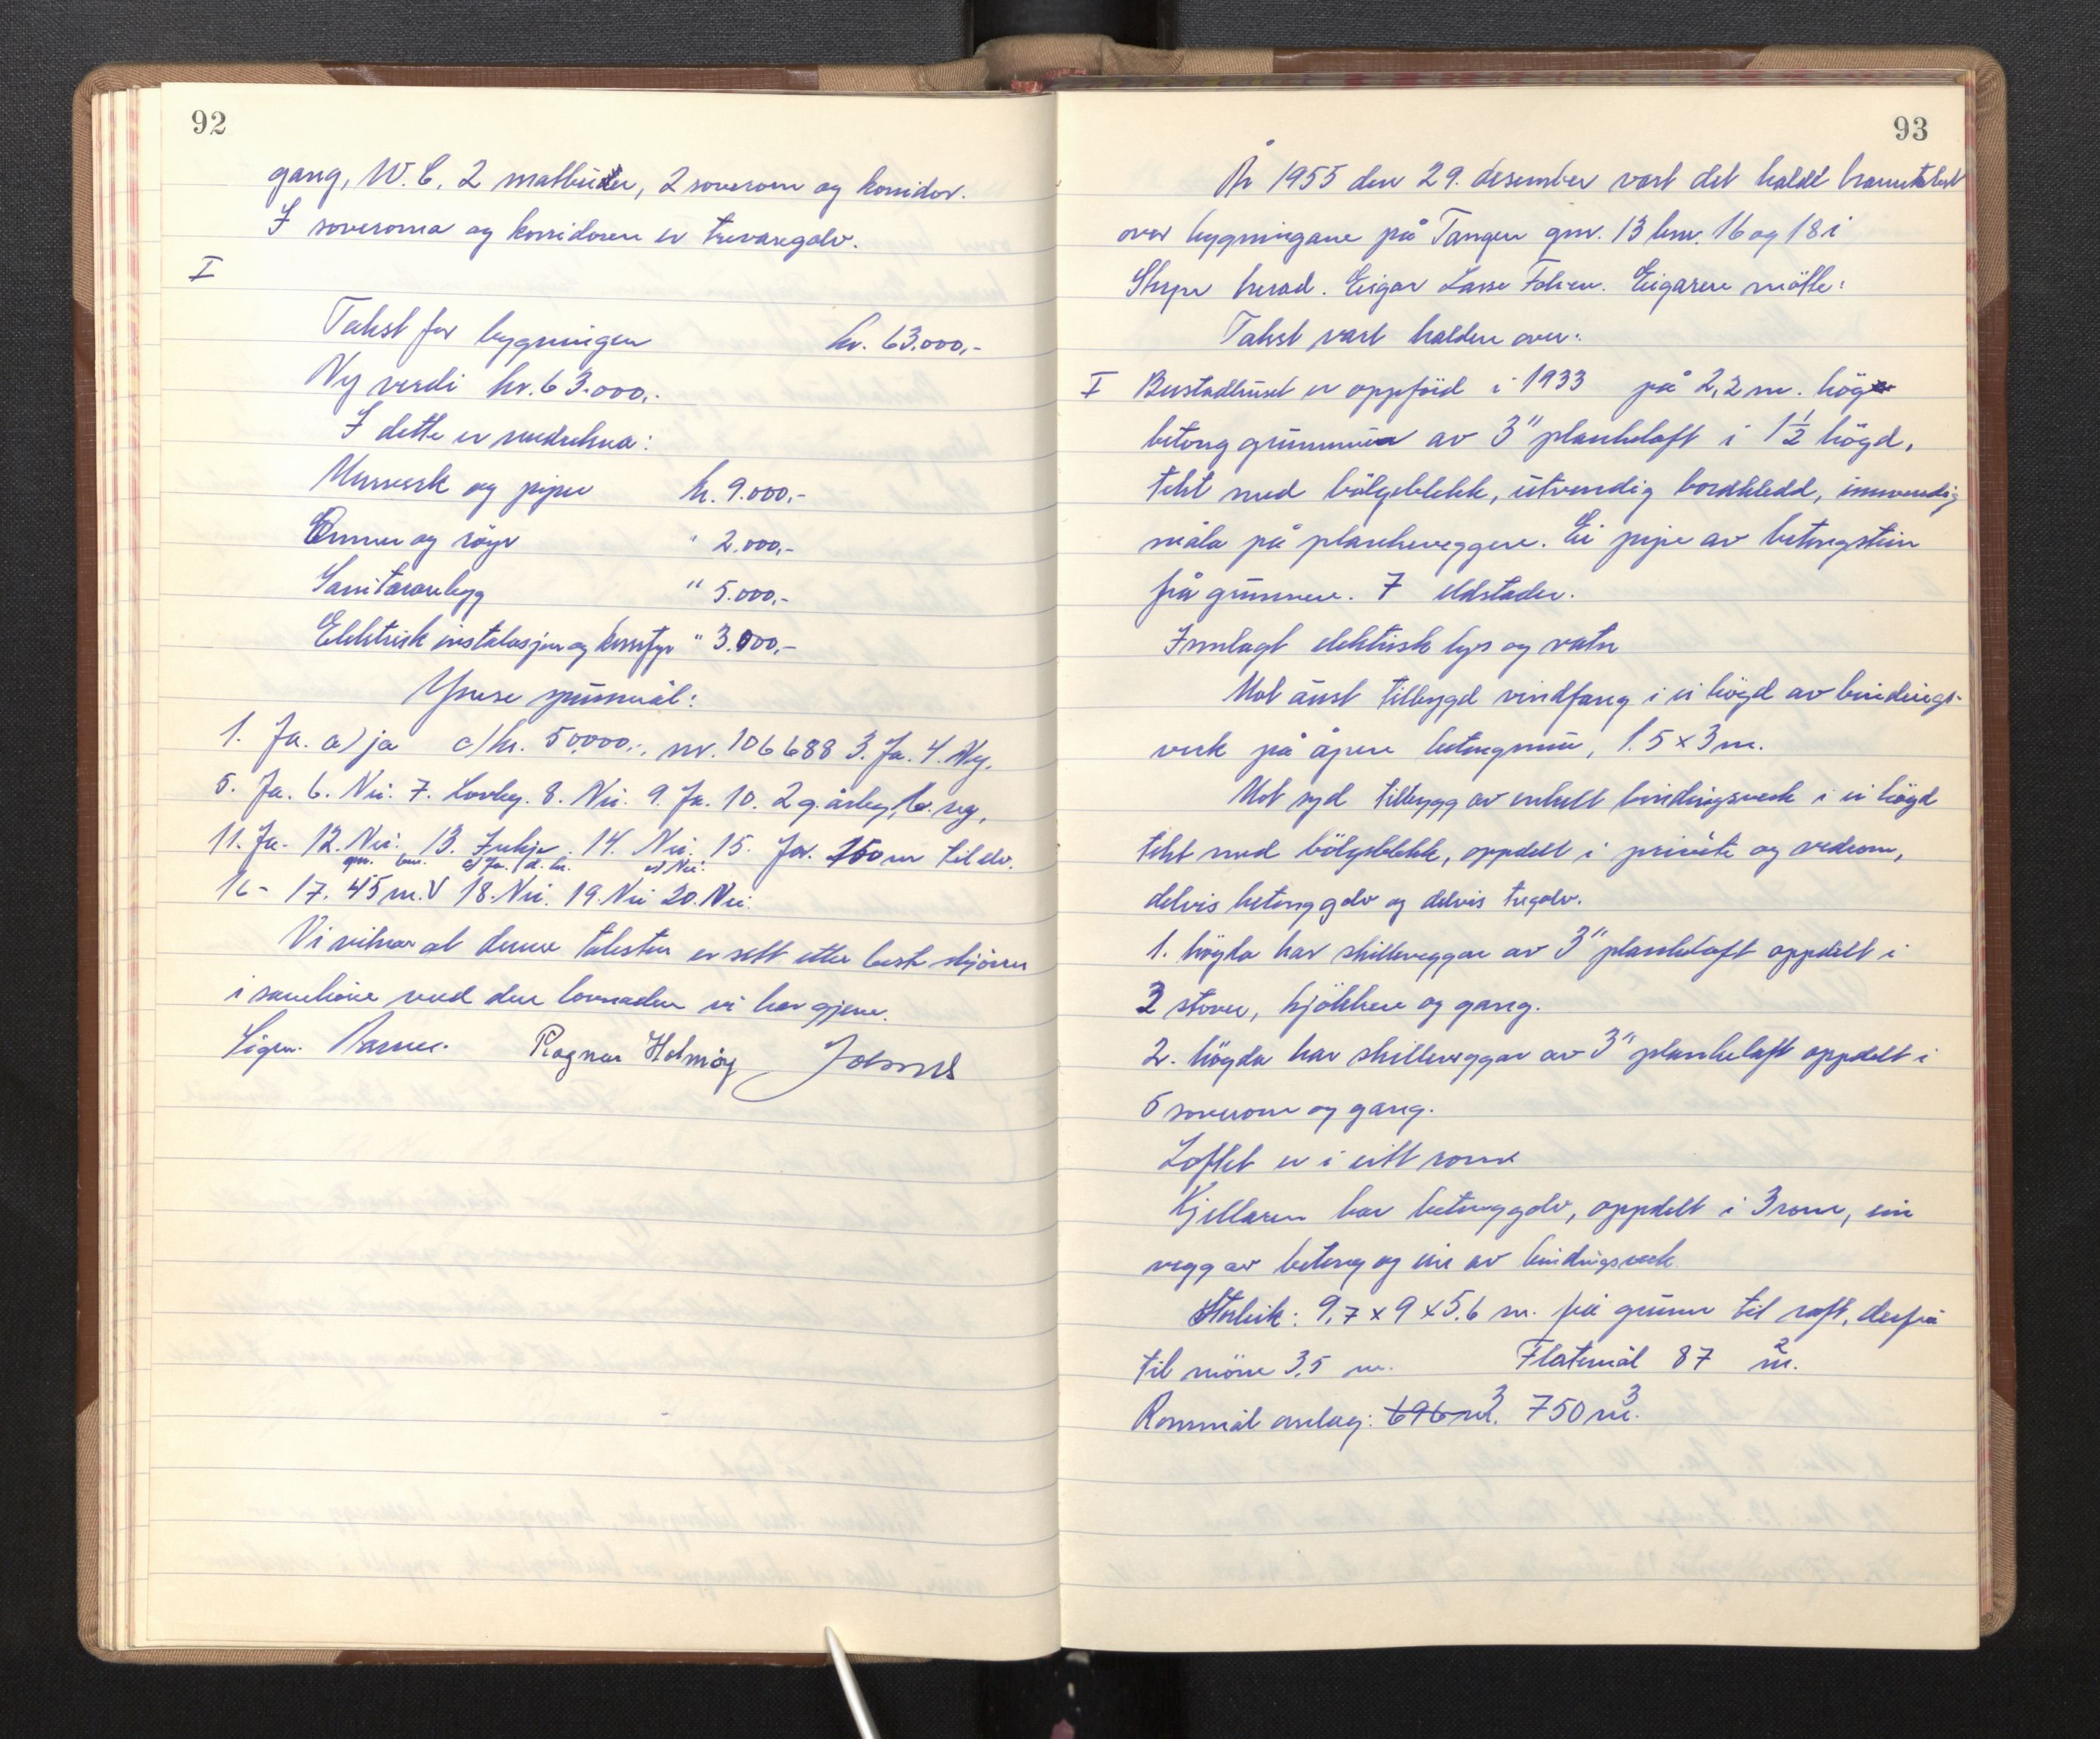 92
gang, W.C, 2 matbuder, 2 soverom og korridor.
I soveroma og korridoren er trevaregolv.
I
Takst for bygningen kr. 63.000,-
Ny verdi kr. 63.000,-
I dette er medrekna:
Murverk og piper kr. 9.000,-
Omner og röyr " 2.000,-
Sanitæranlegg " 5.000,-
Elektrisk instalasjon og komfyr " 3.000,-
Ymse spursmål:
1. Ja. a) ja c) kr. 50.000,-, nr. 106688 3. Ja. 4. Ny.
5. Ja. 6. Nei. 7. Lovleg. 8. Nei. 9. Ja. 10. 2 g. årleg, b. veg.
11. Ja. 12. Nei. 13. 14. Nei. 15. Ja. 150 m til elv.
16 - 17. 45 m. V 18. Nei. 19. Nei 20. Nei.
Vi vitnar at denne taksten er sett etter beste skjönn
i samhöve med den lovnaden vi har gjeve.
Ragnar Holmöy
93
År 1955 den 29. desember vart det haldt branntakst
over bygningane på Tangen gnr. 13 bnr. 16 og 18 i
Stryn herad. Eigar Lasse Eigaren mötte:
Takst vart halden over:
I Bustadhuset er oppföid i 1933 på 2,2 m. hög
betong grunnmur av 3" plankelaft i 1½ högd,
tekt med bölgeblekk, utvendig bordkledd, innvendig
måla på plankeveggene. Ei pipe av betongstein
frå grunnen. 7 eldstader.
Innlagt elektrisk lys og vatn
Mot aust tilbygd vindfang i ei högd av bindings-
verk på åpen betongmur, 1.5 x 3 m.
Mot syd tilbygg av enkelt bindingsverk i ei högd
tekt med bölgeblekk, oppdelt i privète og vedrom,
delvis betonggolv og delvis tregolv.
1. högda har skilleveggar av 3" plankelaft oppdelt i
2 stover, kjökken og gang.
2. högda har skilleveggar av 3" plankelaft oppdelt i
5 soverom og gang.
Loftet er i eitt rom
Kjellaren har betonggolv, oppdelt i 3 rom, ein
vegg av betong og ein av bindingsverk
Storleik: 9,7 x 9 x 5,6 m. frå grunn til raft, derfrå
til möne 3,5 m. Flatemål 87 m².
Rommål anslag: 696 m³. 750 m³.